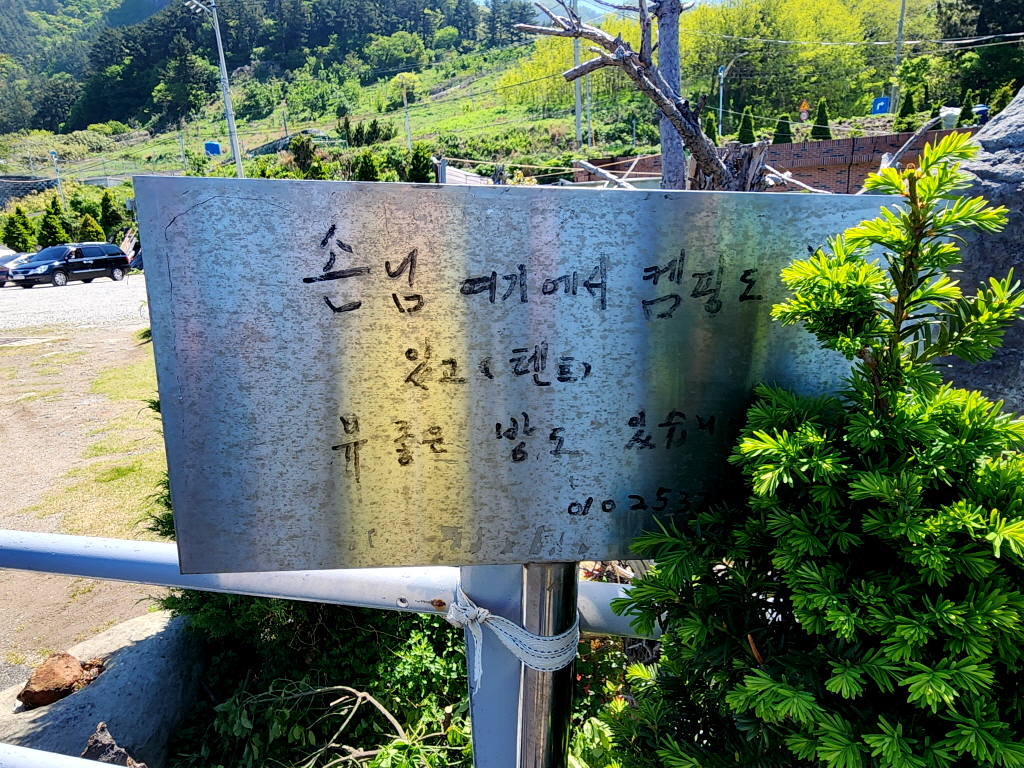 손님 여기에서 켐핑도
있고 (텐트)
뷰 좋은 방도 있습니
010 253